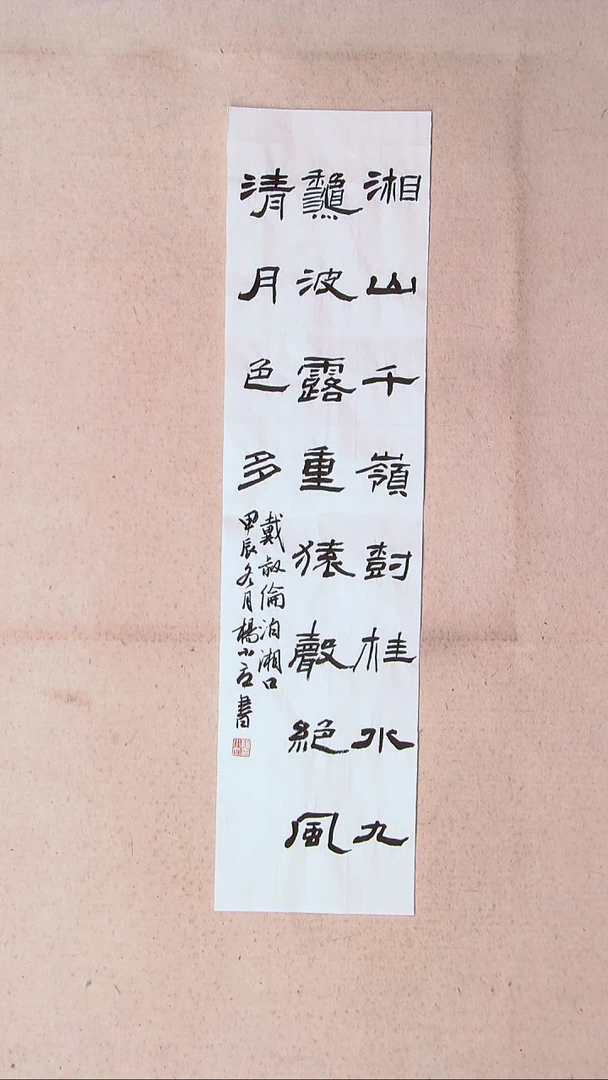 湘山千嶺尌桂水九
龝波露重猿聲絕風
清月色多
戴叔倫泊湘口
甲辰冬月楊小書